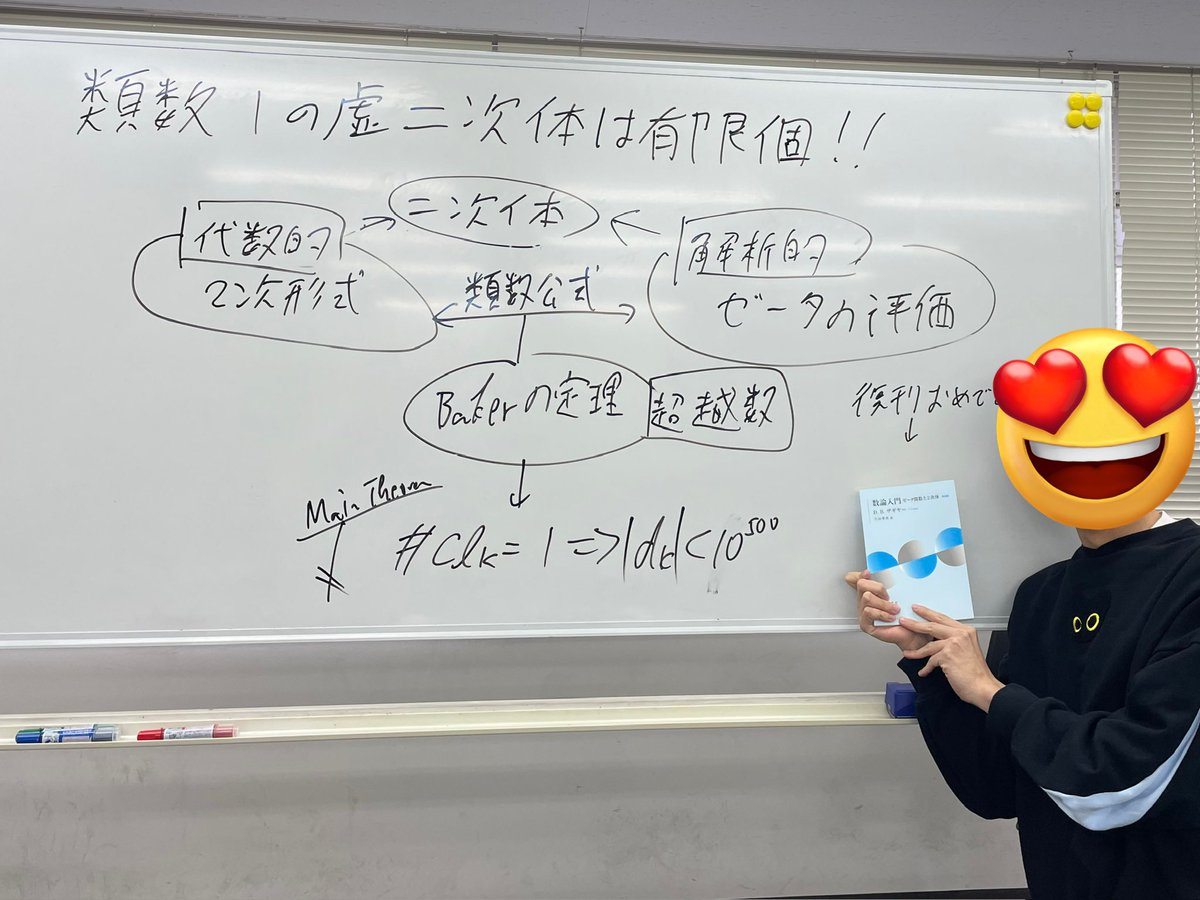 類数1の虚二次体は有限個!!
二次体
代数的
2次形式
類数公式
解析的
ゼータの評価
Bakerの定理
超越数
復刊おめで
↓
Main Theorem
#Clk=1⇒|dk|<10^500
数論入門
D. B. ザギヤー